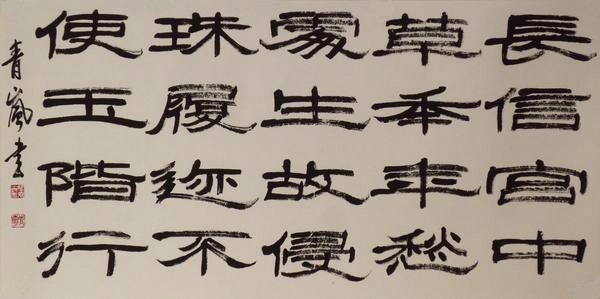 長信宮中
草秊年愁
處生故侵
珠履迹不
使玉階行
青嵐書